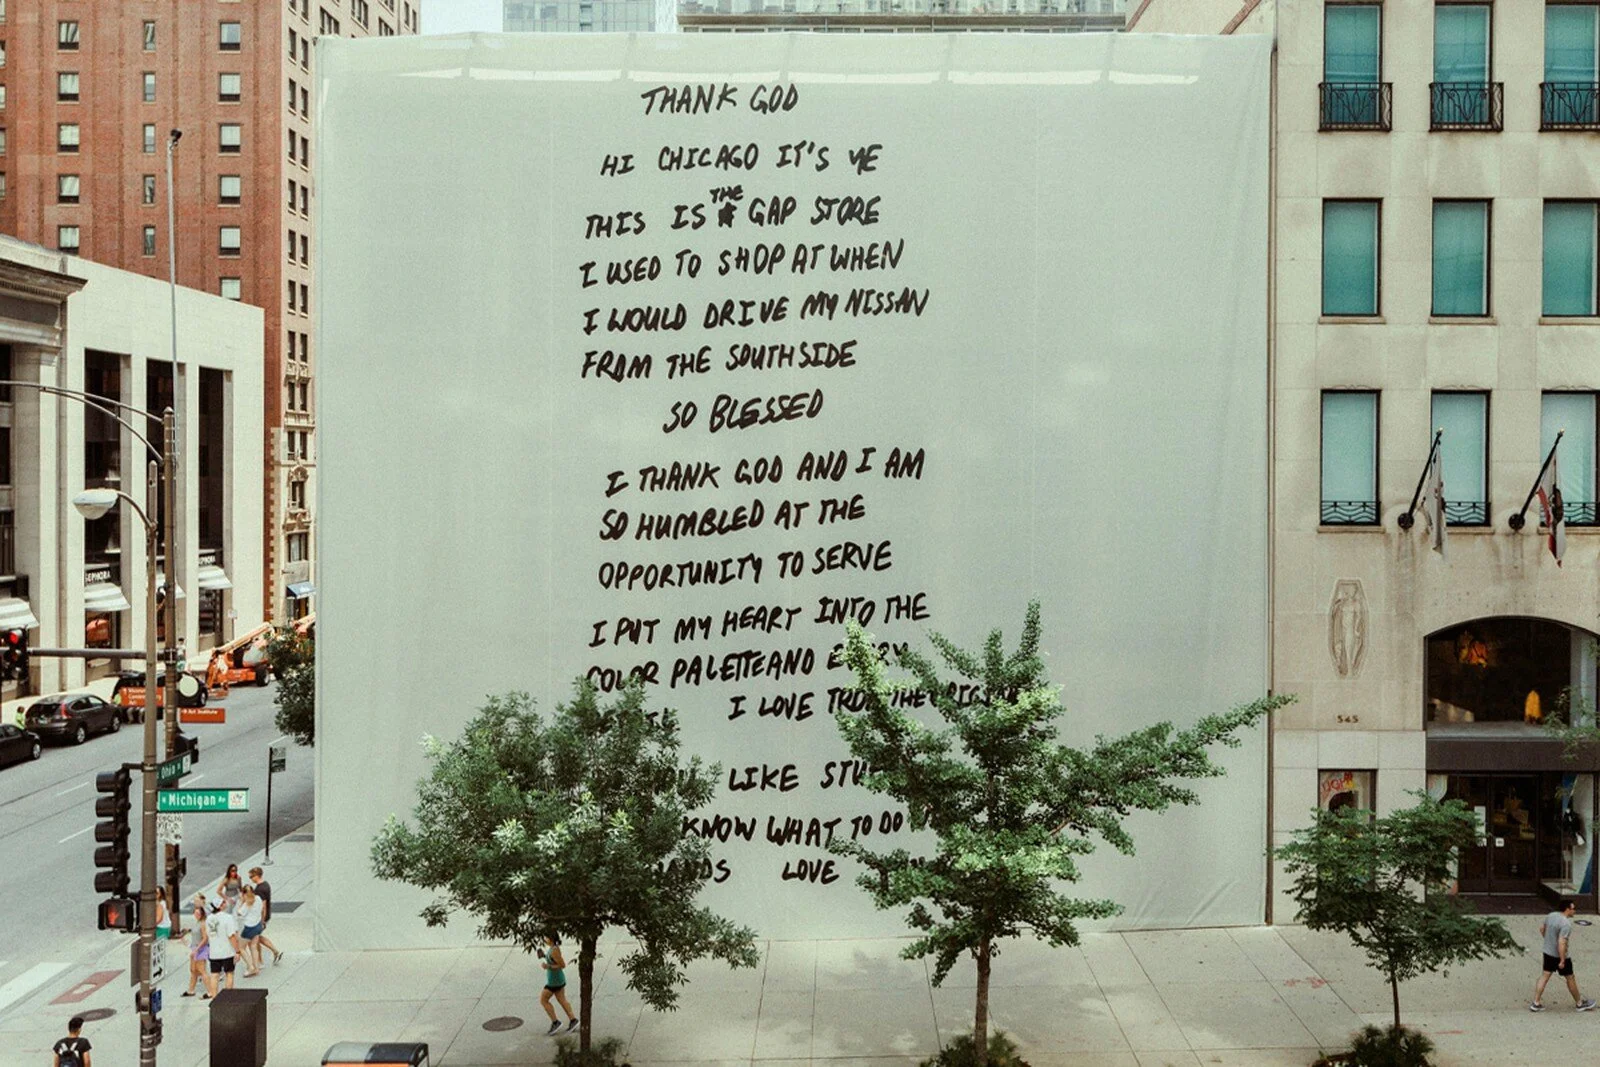 THANK GOD
HI CHICAGO IT'S YE
THIS IS THE GAP STORE
I USED TO SHOP AT WHEN
I WOULD DRIVE MY NISSAN
FROM THE SOUTHSIDE
SO BLESSED
I THANK GOD AND I AM
SO HUMBLED AT THE
OPPORTUNITY TO SERVE
I PUT MY HEART INTO THE
COLOR PALETTE AND EVERY
I LOVE THE
LIKE
KNOW WHAT TO DO
LOVE
SEPHORA
SEPHORA
Ohio
N Michigan Av
545